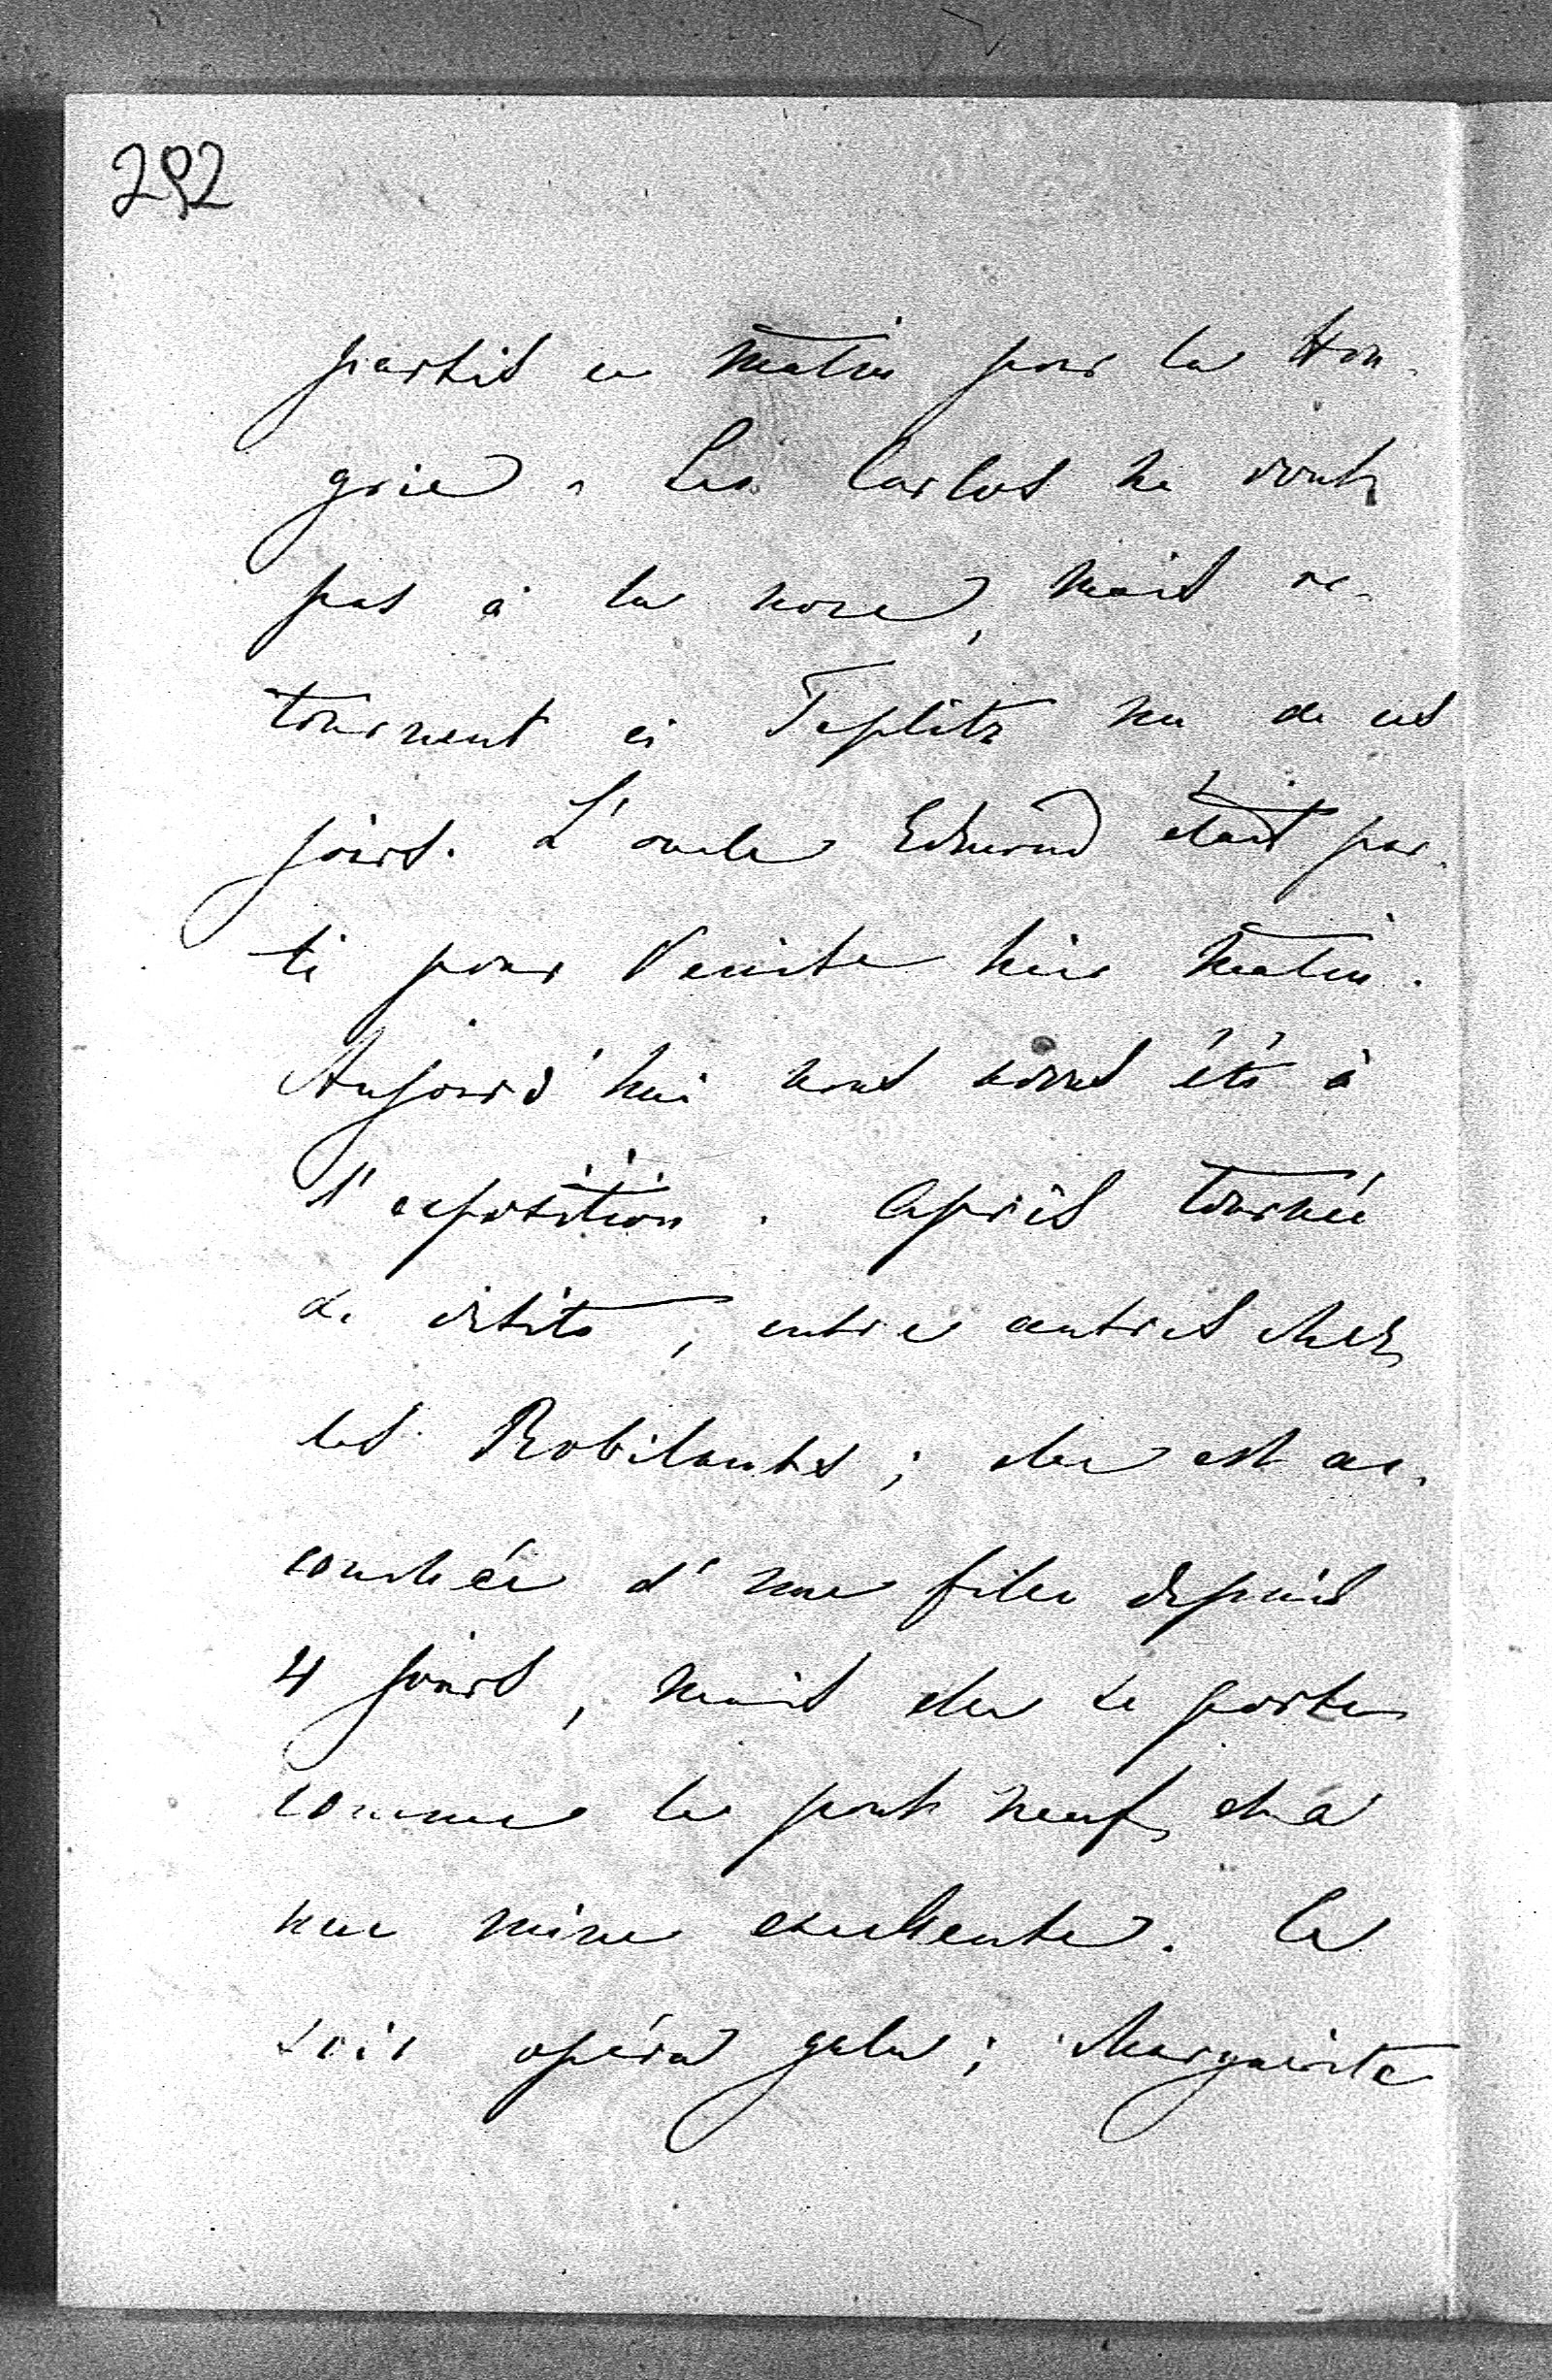 292
partis ce matin pour la Hon-
grie. Les Carlos ne vont
pas à la noce, mais re-
tournent à Teplitz un de ces
jours. L'oncle Edmond était par-
ti pour Venise hier matin.
Aujourd'hui nous avons été à
l'exposition. Après tournée
de visites, entre autres chez
les Robilants; elle est ac-
couchée d'une fille depuis
4 jours, mais elle se porte
comme le pont neuf, et a
une mine excellente. Ce
soir opéra gala; Marguerite